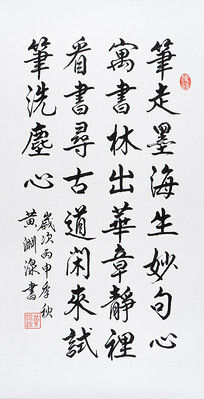 筆走墨海生妙句心
寓書林出華章靜裡
看書尋古道閑來試
筆洗塵心
歲次丙申季秋
黄淵深書